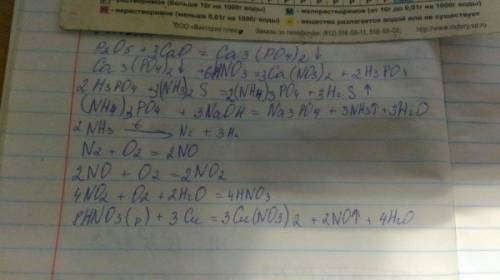 Р - растворимое (больше 10г на 1000г воды)
Н - нерастворимое (меньше 0,01г на 1000г воды)
М - малорастворимое (от 10г до 0,01г на 1000г воды)
- вещество разлагается водой или не существует
Заказы по телефону (812)
P2O5 + 3CaO = Ca3(PO4)2↓
Ca3(PO4)2↓ + 6HNO3 = 3Ca(NO3)2 + 2H3PO4
2H3PO4 + 3(NH4)2S = 2(NH4)3PO4 + 3H2S↑
(NH4)3PO4 + 3NaOH = Na3PO4 + 3NH3↑ + 3H2O
2NH3 t→ N2 + 3H2
N2 + O2 = 2NO
2NO + O2 = 2NO2
4NO2 + O2 + 2H2O = 4HNO3
8HNO3(р) + 3Cu = 3Cu(NO3)2 + 2NO↑ + 4H2O